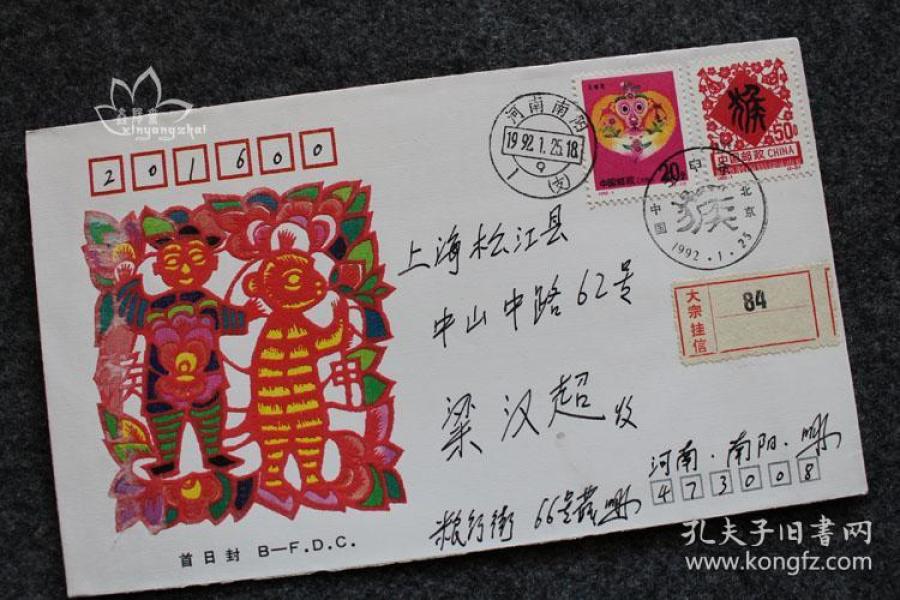 鑫阳斋
xinyangzhai
201600
河南南阳
1992.1.25.18
9
1 (支)
20分
中国邮政
猴
50分
中国邮政 CHINA
中国
北京
猴
1992.1.25
上海松江县
中山中路62号
梁汉超收
大宗挂信
84
河南·南阳·
473008
粮行街 66号
申
首日封 B—F.D.C.
孔夫子旧书网
www.kongfz.com